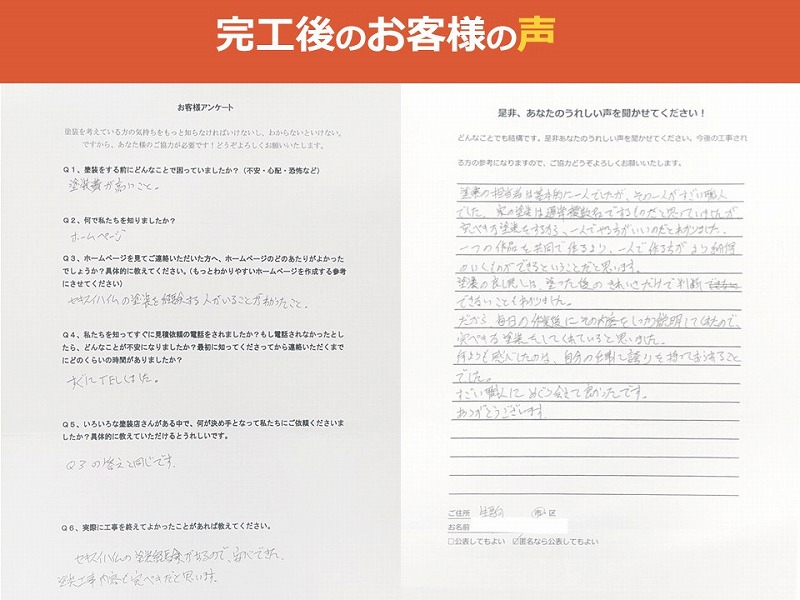 完工後のお客様の声
お客様アンケート
塗装を考えている方の気持ちをもっと知らなければいけないし、わからないといけない。
ですから、あなた様のご協力が必要です！どうぞよろしくお願いいたします。
Q1、塗装をする前にどんなことで困っていましたか？（不安・心配・恐怖など）
塗装費が高いこと。
Q2、何で私たちを知りましたか？
ホームページ
Q3、ホームページを見てご連絡いただいた方へ、ホームページのどのあたりがよかった
でしょうか？具体的に教えてください。（もっとわかりやすいホームページを作成する参考
にさせてください）
セキスイハイムの塗装を経験する人がいることがわかったこと。
Q4、私たちを知ってすぐに見積依頼の電話をされましたか？もし電話されなかったとし
たら、どんなことが不安になりましたか？最初に知ってくださってから連絡いただくまで
にどのくらいの時間がありましたか？
すぐにTELしました。
Q5、いろいろな塗装店さんがある中で、何が決め手となって私たちにご依頼くださいま
したか？具体的に教えていただけるとうれしいです。
Q3の答えと同じです。
Q6、実際に工事を終えてよかったことがあれば教えてください。
セキスイハイムの塗装経験があるので、安心できた。
塗装工事内容も完ぺきだと思います。
是非、あなたのうれしい声を聞かせてください！
どんなことでも結構です。是非あなたのうれしい声を聞かせてください。今後の工事され
る方の参考になりますので、ご協力どうぞよろしくお願いいたします。
塗装の担当者は基本的に一人でしたが、その一人がすごい職人
でした。家の塗装は通常複数名でするものだと思っていましたが
完ぺきな塗装をするなら、一人でやる方がいいのだとわかりました。
一つの作品を共同で作るより、一人で作る方がより納得
のいくものができるということだと思います。
塗装の良し悪しは、塗った後のきれいさだけで判断
できないこともわかりました。
だから、毎日の作業後にその内容をしっかり説明してくれたので、
完ぺきな塗装をしてくれていると思いました。
何よりも感じたのは、自分の仕事に誇りを持っておられること
でした。
すごい職人にめぐり会えて良かったです。
ありがとうございます。
ご住所 生駒 市 区
お名前
□公表してもよい ☑匿名なら公表してもよい